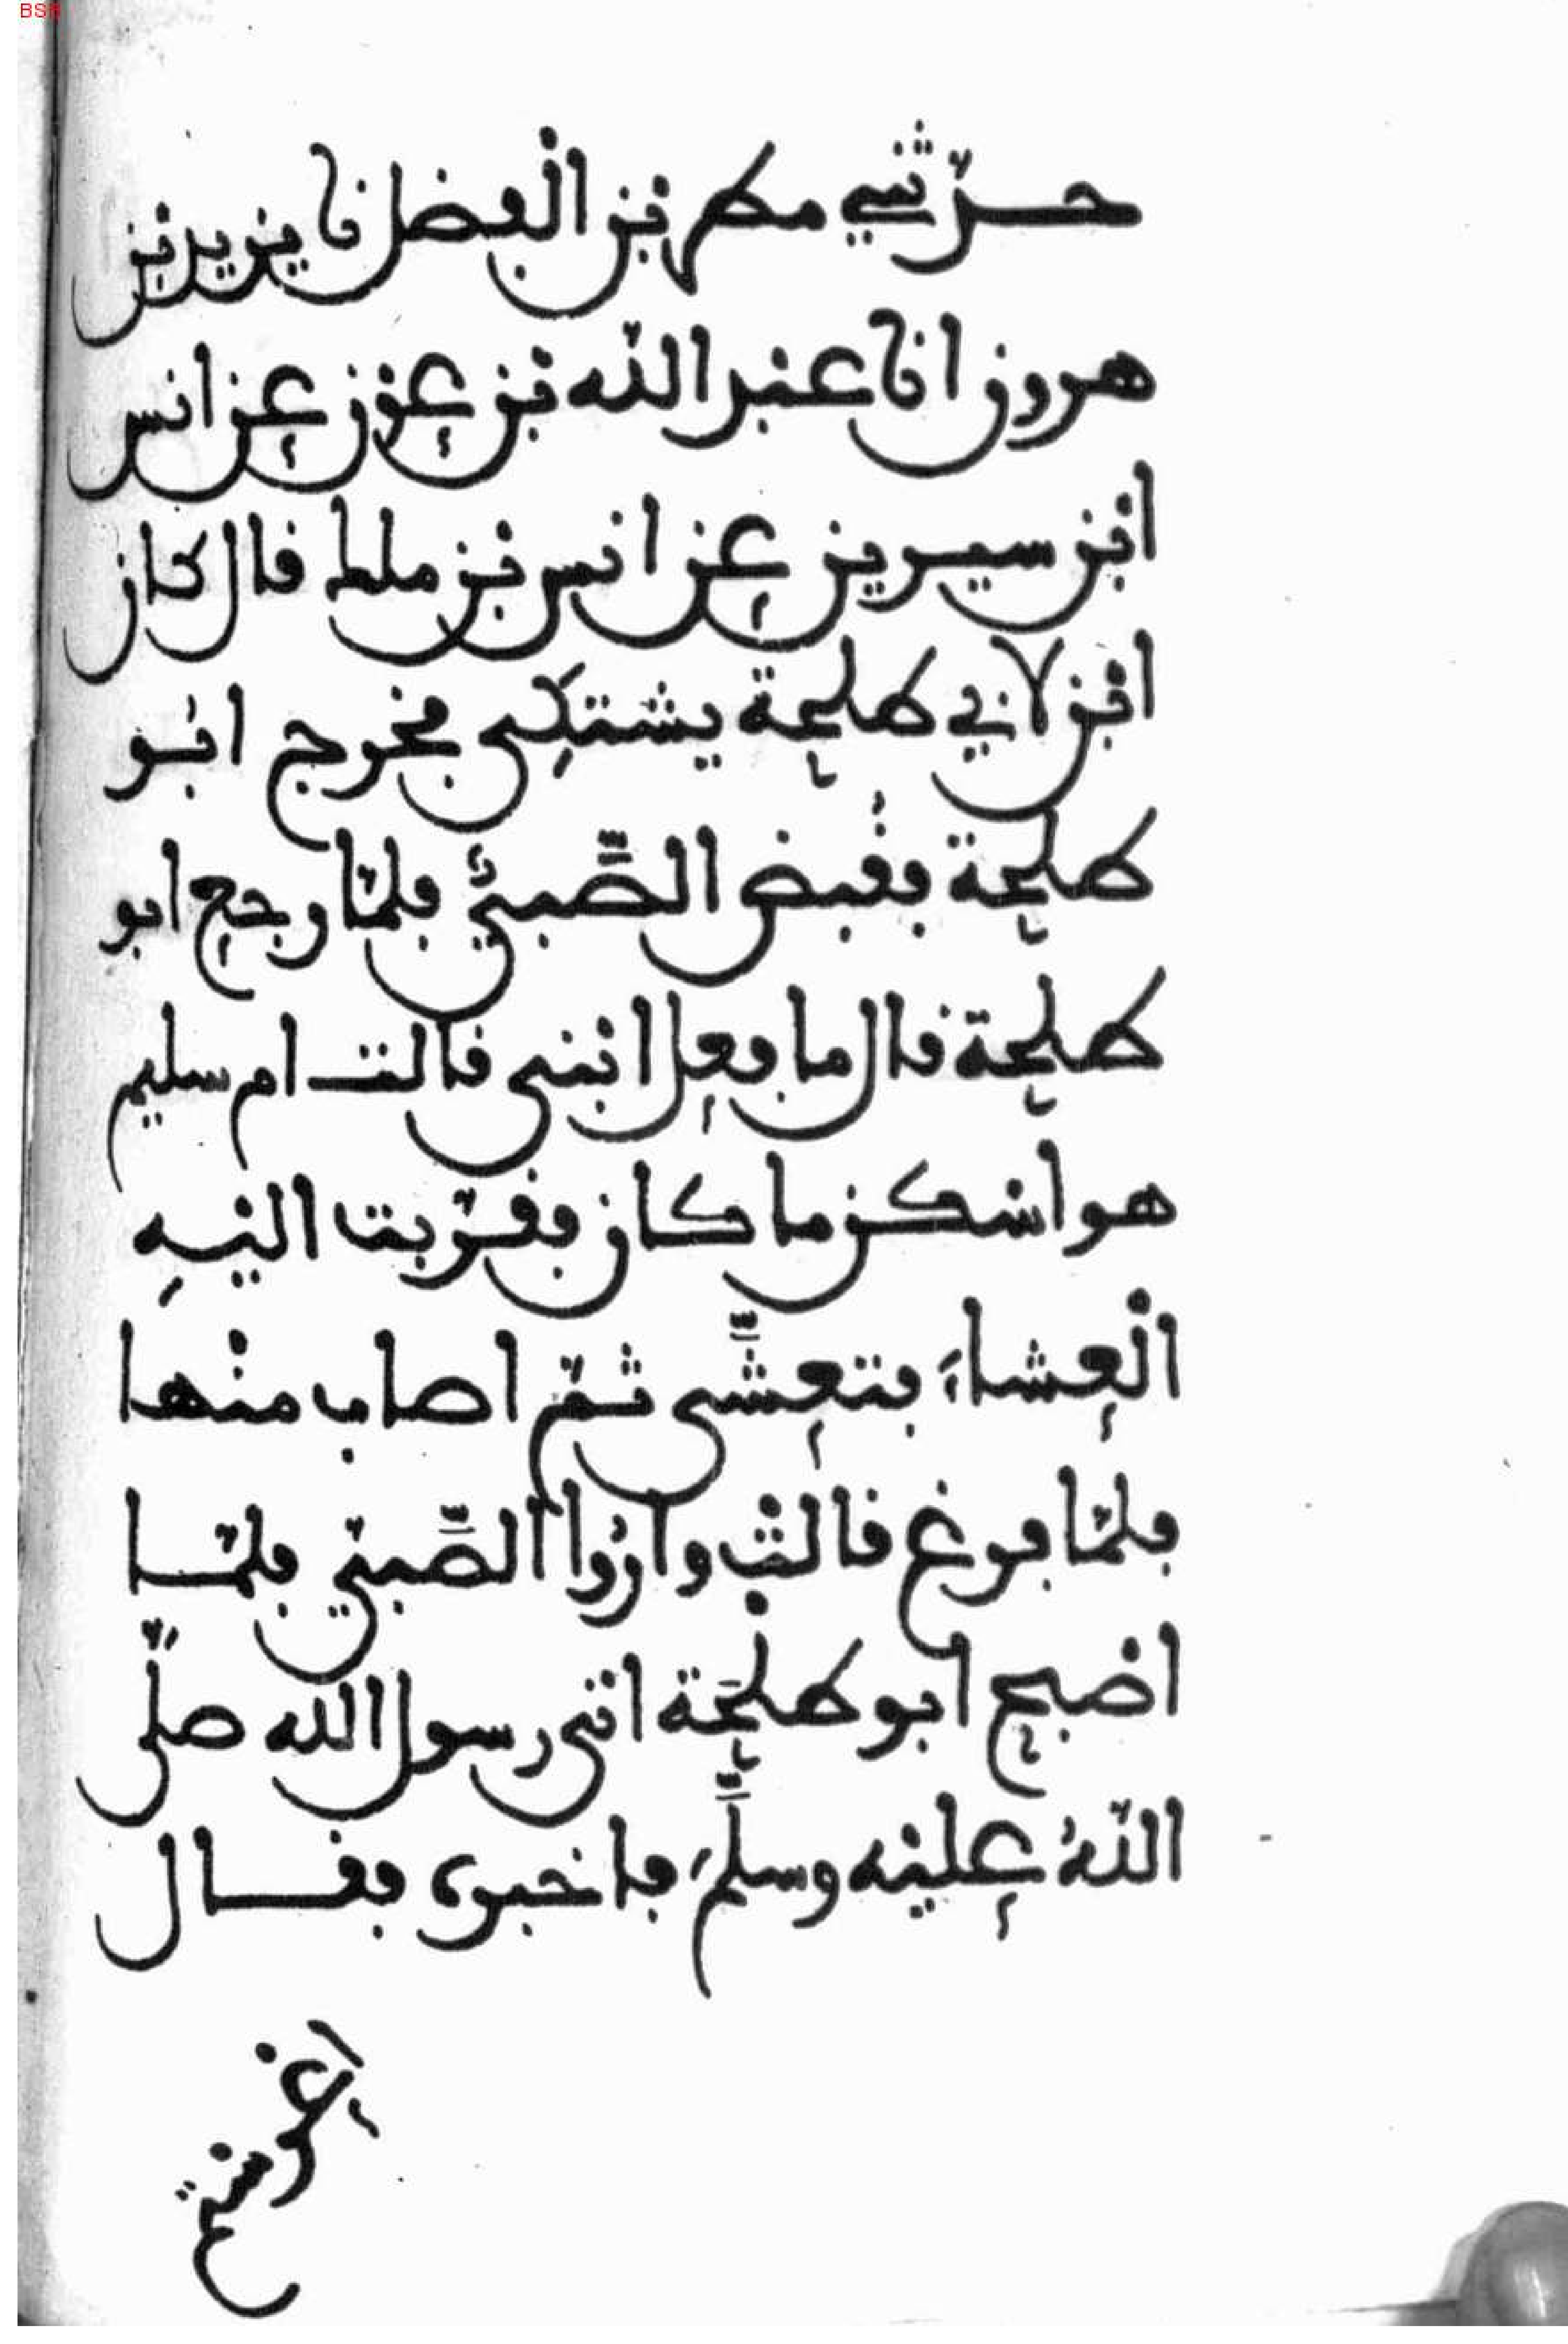 BSB
حدّثني مطر بن الفضل نا يزيد بن
هرون انا عبد اللّه بن عون عن انس
ابن سيرين عن انس بن ملك قال كان
ابن لابي طلحة يشتكي فخرج ابو
طلحة فقُبض الصَّبيُّ فلمّا رجع ابو
طلحة قال ما فعل ابني قالت ام سليم
هو اسكن ما كان فقرّبت اليْهِ
الْعِشاءَ فتعشَّى ثمّ اصاب منْها
فلمّا فرغ قالتْ وارُوا الصَّبيّ فلمّا
اصْبح ابو طلحَة اتى رسول الله صلّى
اللّهُ عليْه وسلَّمَ فاخبره فقال